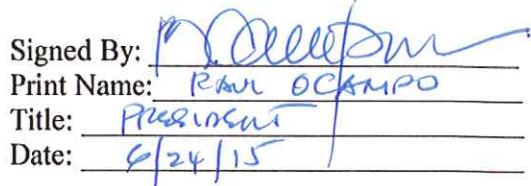 Signed By:
Print Name: RAUL OCAMPO
Title: PRESIDENT
Date: 6/24/15